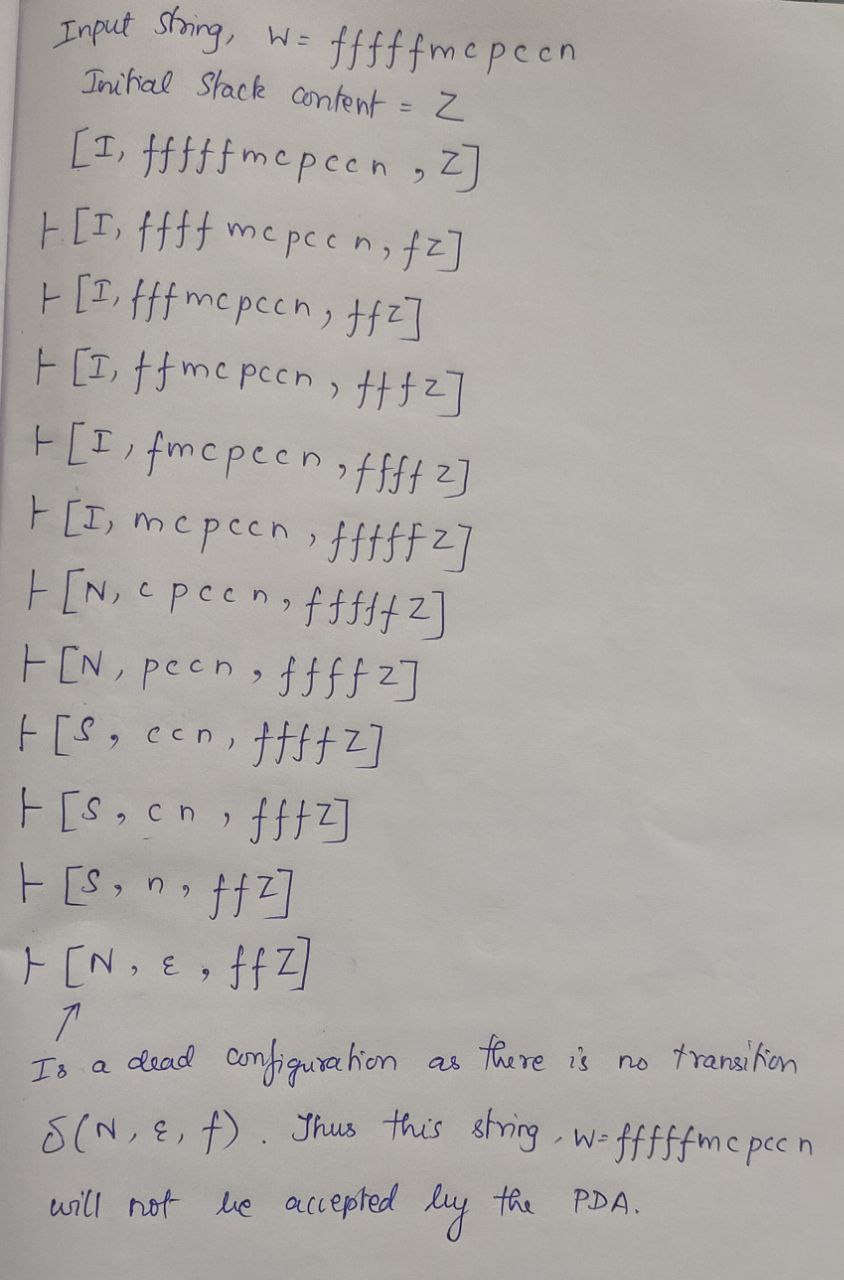 Input String, W = fffffmcpccn
Initial Stack content = Z
[I, fffffmcpccn, Z]
⊢ [I, ffffmcpccn, fZ]
⊢ [I, fffmcpccn, ffZ]
⊢ [I, ffmcpccn, fffZ]
⊢ [I, fmcpccn, ffffZ]
⊢ [I, mcpccn, fffffZ]
⊢ [N, cpccn, fffffZ]
⊢ [N, pccn, ffffZ]
⊢ [S, ccn, ffffZ]
⊢ [S, cn, fffZ]
⊢ [S, n, ffZ]
⊢ [N, ε, ffZ]
↗
Is a dead configuration as there is no transition
δ(N, ε, f). Thus this string, W=fffffmcpccn
will not be accepted by the PDA.